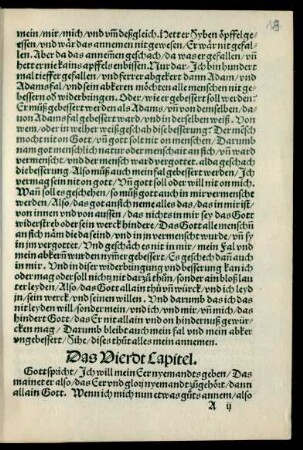 mein/mir/mich/vnd vnd deßgleich. Hett er Syben öpffel ge
essen/vnd wär das annemen nit gewesen/Er wär nit gefal-
len. Aber da das annemen geschach/da was er gefallen/vn̄
hett er nie kains apffels enbissen. Nun dar. Ich bin hundert
mal tieffer gefallen/vnd ferrer abgekert dann Adam/vnd
Adams fal/vnd sein abkeren möchten alle menschen nit ge-
bessern oder widerbringen. Oder/wie er gebessert soll werdē?
Er muß gebessert werden als Adam/vn̄ von dem selben/da-
uon Adams fal gebessert ward/vnd in der selben weiß. Von
wem/oder in welher weiß geschach die besserung? Der mēsch
mocht nit on Gott. vn̄ gott solt nit on menschen/Darumb
nam got menschlich natur oder menschait an sich/vn̄ ward
vermenscht/vnd der mensch ward vergottet. alda geschach
die besserung. Also müß auch mein fal gebessert werden/Ich
vermag sein nit on gott/Vn̄ gott soll oder will nit on mich.
Wan̄ soll es geschehen/so müß gott auch in mir vermenscht
werden/Also/das got an sich neme alles das/das in mir ist
von innen vnd von aussen/das nichts in mir sey das Gott
widerstreb oder sein werck hinder. Das Gott alle menschn̄
an sich näm die da seind/vnd in jn vermenscht wurde. vn̄ sy
in jm vergottet/Vnd geschäch es nit in mir/mein Fal vnd
mein abkern̄ wurden nymer gebessert/Es geschech dan̄ auch
in mir. Vnd in diser widerbringung vnd besserung kan ich
oder mag oder soll nichtz nit dartzů thůn/sonder ain bloß lau
ter leyden/Also/das Got allain thů vn̄ würck/vnd ich leyd
jn/sein werck/vnd seinen willen. Vnd darumb das ich das
nit leyden will/sonder mein/vnd ich/vnd mir/vn̄ mich/das
hindert Gott/das Er nit allain vnd on hindernuß gewür-
cken mag/Darumb bleibt auch mein fal vnd mein abker
vngebessert/Sihe/dises thůt alles mein annemen.
Das Vierdt Capitel.
Gott spricht/Ich will mein Eer nyemandts geben/Das
maint er also/das Eer vnd glori nyemandt zůgehört/dann
allain Gott. Wenn ich mich nun etwas gůts annem/also
A ij